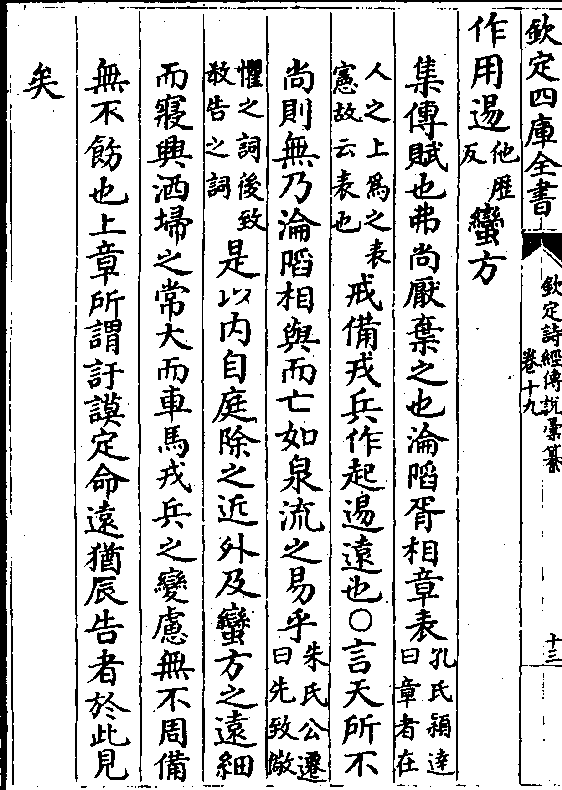 欽定四庫全書
欽定詩經傳說彙纂
卷十九
十三
作用逷他歷反蠻方
集傳賦也弗尚厭棄之也淪䧟胥相章表孔氏穎達曰章者在
人之上為之表憲故云表也戒備戎兵作起逷遠也○言天所不
尚則無乃淪䧟相與而亡如泉流之易乎朱氏公遷曰先致儆
懼之詞後致教告之詞是以内自庭除之近外及蠻方之遠細
而寢興洒埽之常大而車馬戎兵之變慮無不周備
無不飭也上章所謂訏謨定命遠猶辰告者於此見
矣